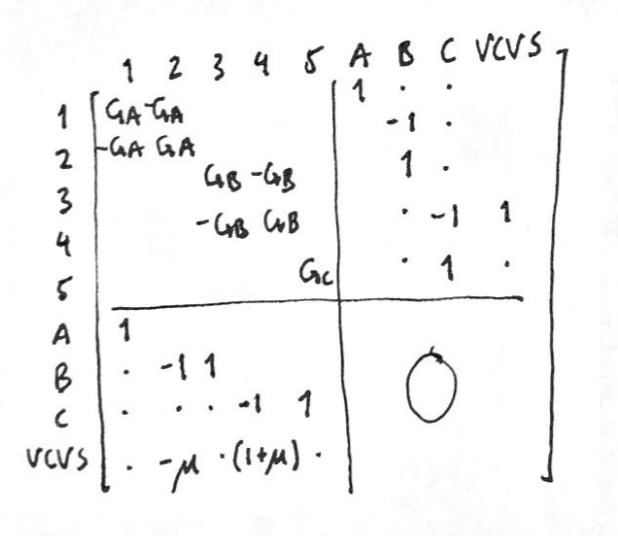 1 2 3 4 5 A B C VCVS
1 GA -GA 1 · ·
2 -GA GA -1 ·
3 GB -GB 1 ·
4 -GB GB · -1 1
5 GC · 1 ·
A 1
B · -1 1
C · · · -1 1
VCVS · -μ · (1+μ) ·
0